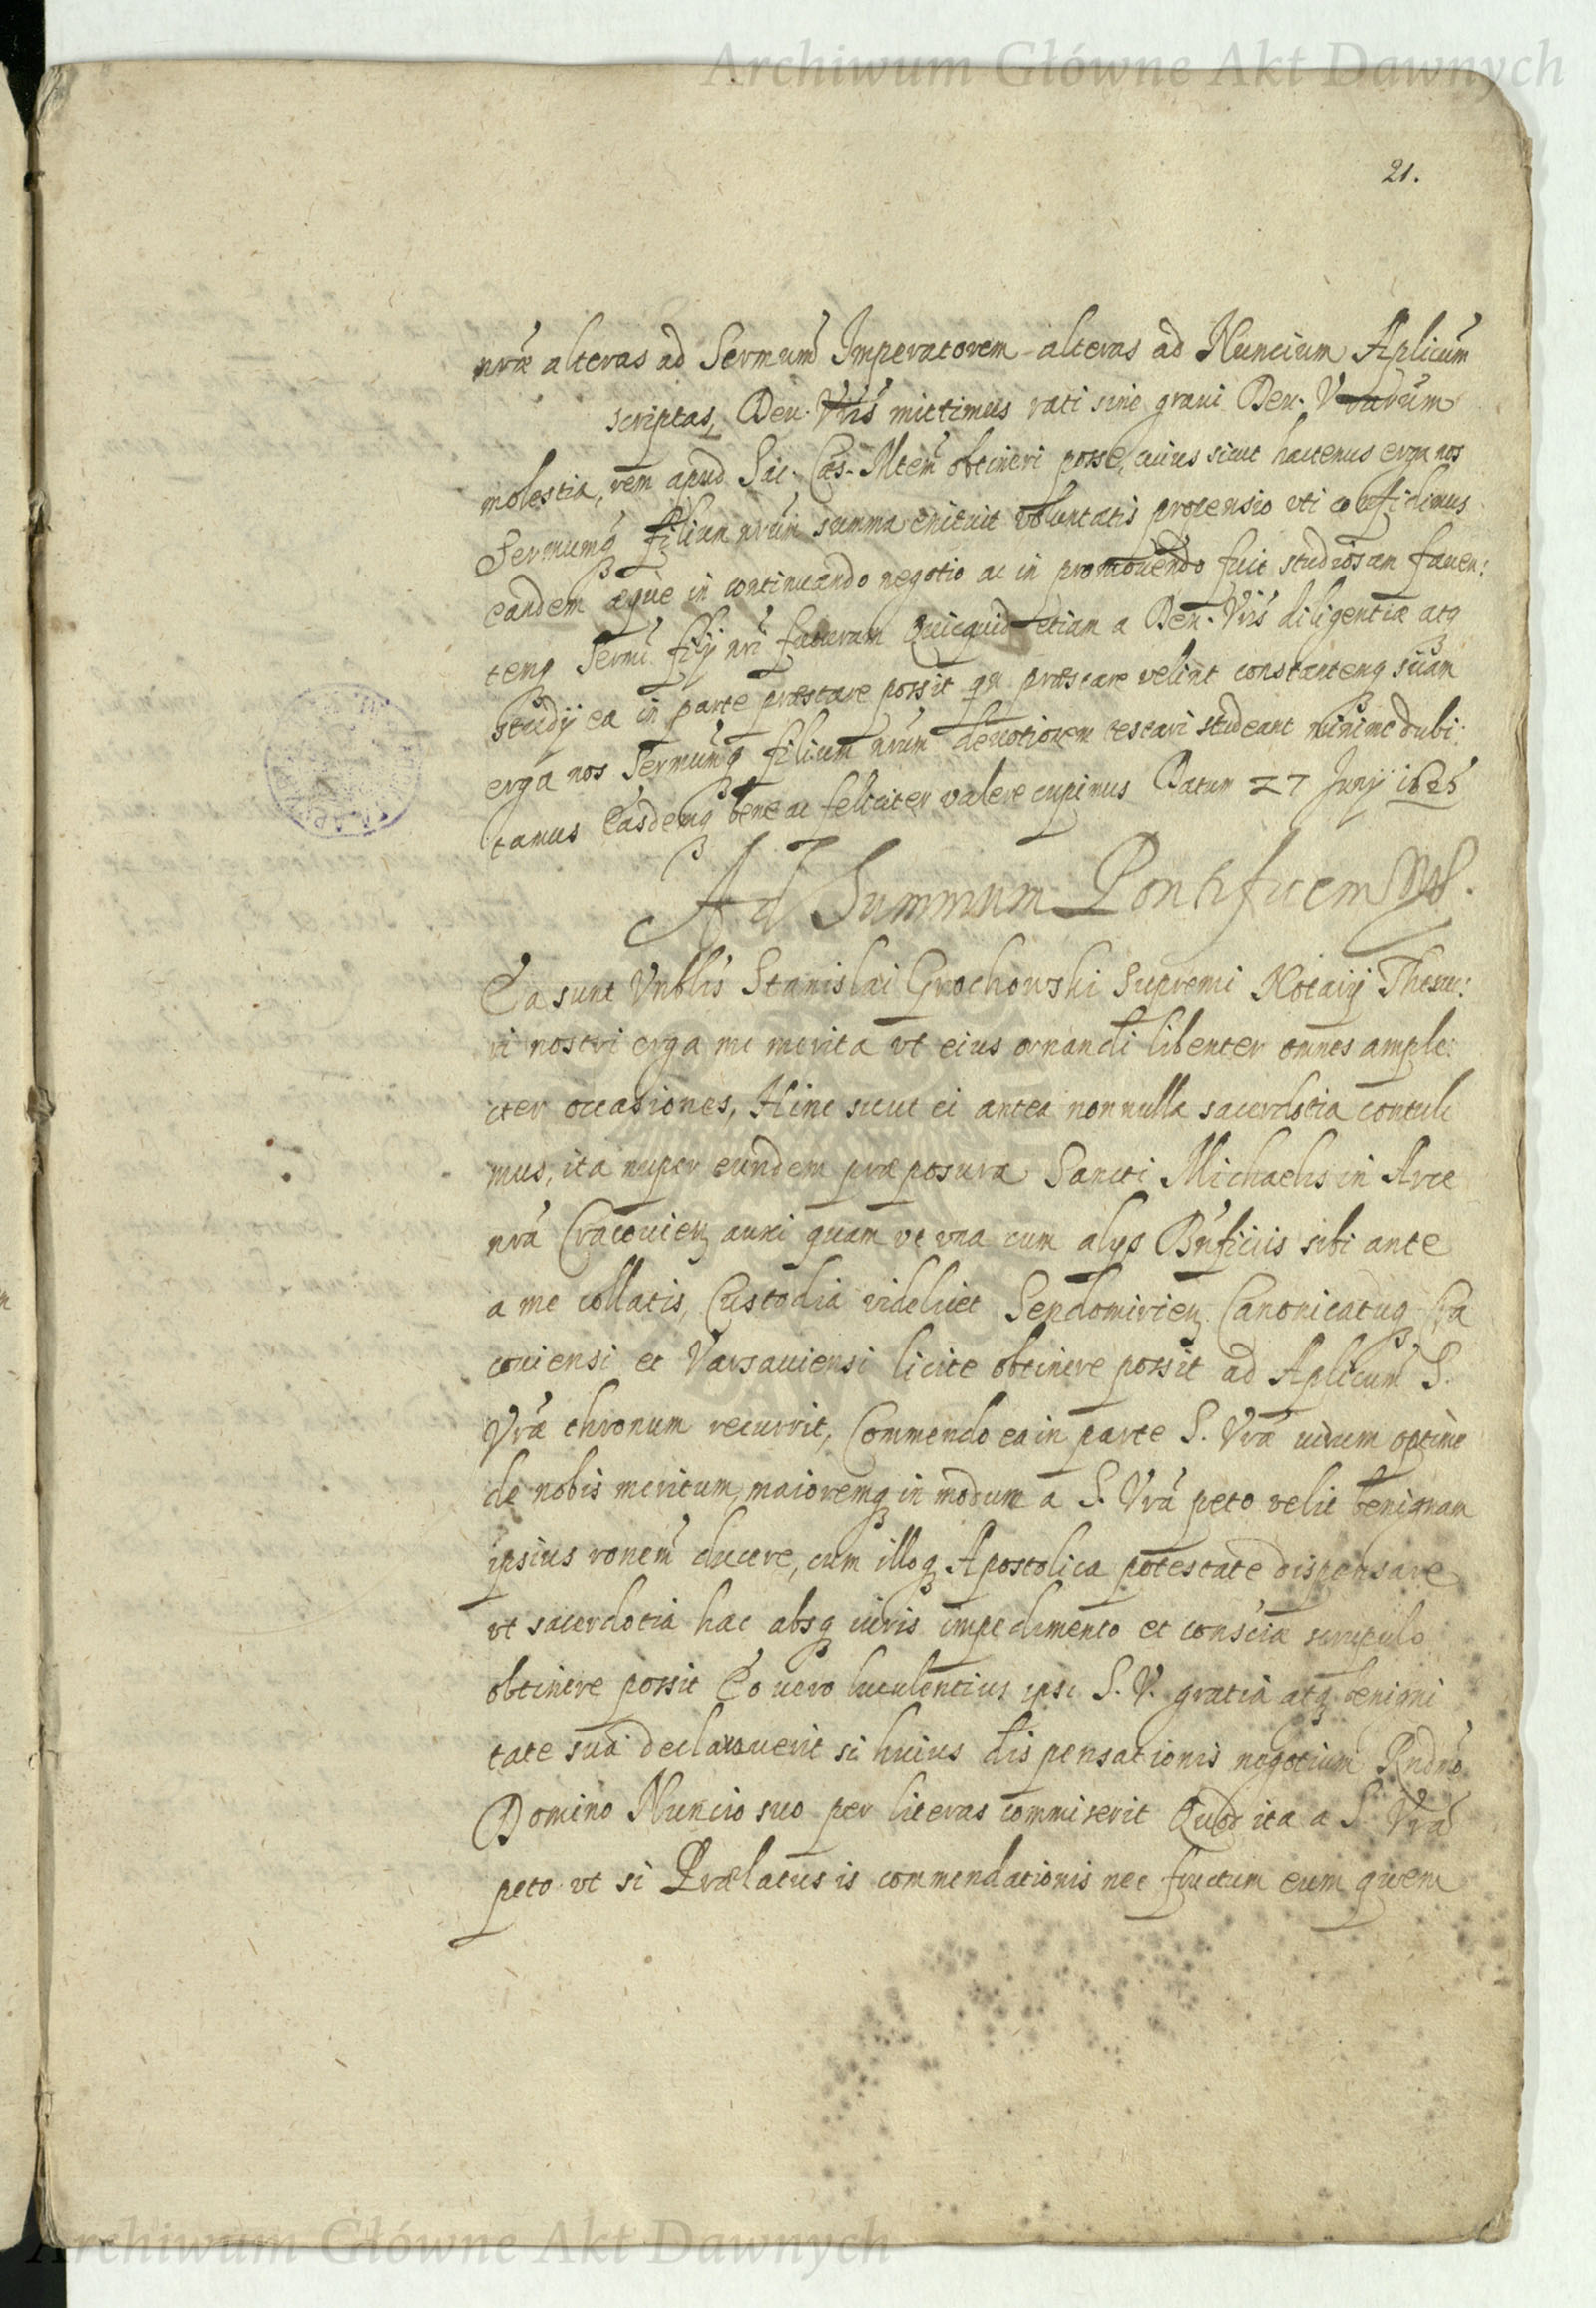 Archiwum Główne Akt Dawnych
21.
nrã alteras ad Sermum Imperatorem alteras ad Nuncium Aplicum̃
scriptas, Deu. Vris̃ mittimus rati sine graui Deu. Vrarum̃
molestia, rem apud Sac. Cæs. Mtem̃ obtineri posse, cuius sicut hactenus erga nos
Sermumq̃ filium nrum̃ summa enituit voluntatis propensio vti confidimus
eandem æque in continuando negotio ac in promouendo fuit studiosam fauen:
temq Sermi filij nri futuram Quicquid etiam a Deu. Vris̃ diligentiæ atq
studij ea in parte præstare possit qn præstare velint constantemq suam
erga nos Sermumq̃ filium nrum deuotionem testari studeant minime dubi:
tamus Easdemq bene ac feliciter valere cupimus Datum 27 Junij 1625
Ad Summum Pontificem
Ea sunt Vnblis̃ Stanislai Grochowski Supremi Notarij Thesau:
ri nostri erga me merita vt eius ornandi libenter omnes ample:
cter occasiones, Hinc sicut ei antea nonnulla sacerdotia contuli
mus, ita nuper eundem præposura Sancti Michaelis in Arce
nrã Cracouien auxi quam vt vna cum alijs Bnficiis sibi ante
a me collatis, Custodia videlicet Sendomirien Canonicatuq Cra
couiensi et Varsauiensi licite obtinere possit ad Aplicum̃ S.
Vræ thronum recurrit, Commendo ea in parte S. Vræ uirum optime
de nobis meritum, maioremq in modum a S. Vrã peto velit benignam
ipsius ronem̃ ducere, cum illoq Apostolica potestate dispensare
vt sacerdotia hac absq iuris impedimento et consc̃iæ scrupulo
obtinere possit Eo uero luculentius ipsi S. V. gratiã atq benigni
tate suã declarauerit si huius dispensationis negotium Rndmo
Domino Nuncio suo per literas commiserit Quod ita a S. Vrã
peto vt si Prælatus is commendationis nec fructum eum quem
Archiwum Główne Akt Dawnych